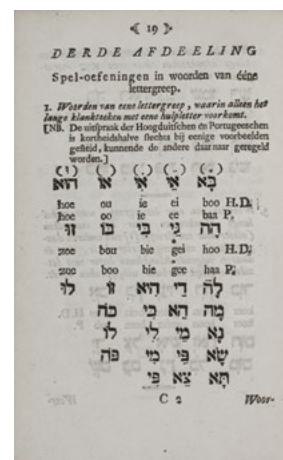 19
DERDE AFDEELING
Spel-oefeningen in woorden van ééne
lettergreep.
1. Woorden van eene lettergreep, waarin alleen het
lange klankteeken met eene hulpletter voorkomt.
[NB. De uitspraak der Hoogduitschen én Portugeeschen
is kortheidshalve slechts bij eenige voorbeelden
gesteld, kunnende de andere daarnaar geregeld
worden.]
בָּא אֵי אִי אוֹ הוּא
hoe ou ie ei boo H.D.
hoe oo ie ee baa P.
הָה גֵּי בִּי בּוֹ זוּ
zoe bou bie gei hoo H.D.
zoe boo bie gee haa P.
לָהּ דֵּי הִיא זוֹ לוּ
מָה הֵא כִּי כֹּה
נָא מֵי לִי לוֹ
שָׂא פִּי מִי פֹּה
תָּא צֵא פִּי
C 2 Woor-